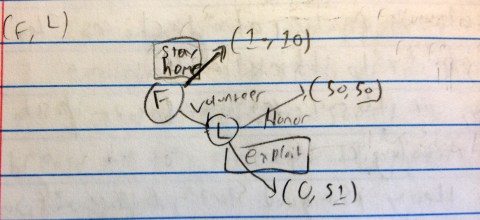 (F, L)
stay
home
(10, 10)
F
Volunteer
(50, 50)
L
Honor
exploit
(0, 51)